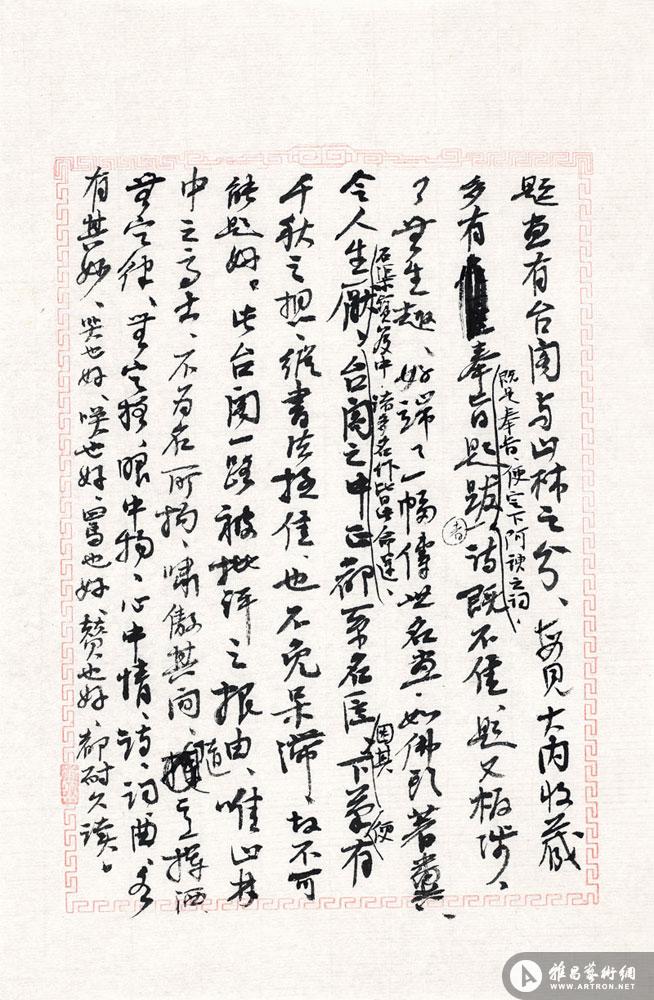 题画有台阁与山林之分、每见大内收藏
多有奉旨题跋者、诗既不佳、题又板滞、
既是奉旨、便定下阿谀之词、
了无生趣、好端端一幅传世名画、如佛头著粪、
石渠宝笈中诸多名作皆是命运、
令人生厌、台阁之中正都系名医下笔有
因其 便
千秋之想、纵书法极佳、也不免呆滞、故不可
能题好。此台阁一路被批评之根由、唯山林
中之高士、不为名所拘、啸傲其间、随意挥洒
无定律、无定格、眼中物、心中情、诗、词曲、各
有其妙、哭也好、笑也好、骂也好、赞也好、都耐久读。
雅昌艺术网
WWW.ARTRON.NET